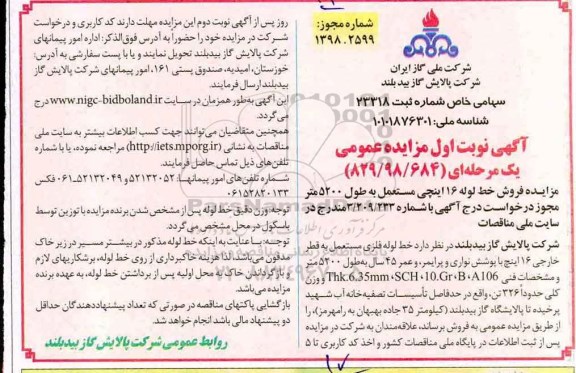 شماره مجوز:
۱۳۹۸.۲۵۹۹
شرکت ملی گاز ایران
شرکت پالایش گاز بیدبلند
سهامی خاص شماره ثبت ۲۳۳۱۸
شناسه ملی: ۱۰۱۰۱۸۷۶۳۰۱
آگهی نوبت اول مزایده عمومی
یک مرحله‌ای (۸۲۹/۹۸/۶۸۴)
مزایده فروش خط لوله ۱۶ اینچی مستعمل به طول ۵۲۰۰ متر
مجوز درخواست درج آگهی با شماره ۳/۲۰۹/۲۳۳ مندرج در
سایت ملی مناقصات
شرکت پالایش گاز بیدبلند در نظر دارد خط لوله فلزی مستعمل به قطر
خارجی ۱۶ اینچ با پوشش نواری و پرایمر، و عمر ۴۵ سال به طول ۵۲۰۰ متر
و مشخصات فنی Thk.6.35mm،SCH۱۰،Gr،B،A106 و وزن
کلی حدوداً ۳۲۶ تن، واقع در حدفاصل تأسیسات تصفیه‌خانه آب شهید
پرخیده تا پالایشگاه گاز بیدبلند (کیلومتر ۳۵ جاده بهبهان به رامهرمز)، را
از طریق مزایده عمومی به فروش برساند، علاقه‌مندان به شرکت در مزایده
پس از ثبت اطلاعات در پایگاه ملی مناقصات کشور و اخذ کد کاربری تا ۵
روز پس از آگهی نوبت دوم این مزایده مهلت دارند کد کاربری و درخواست
شرکت در مزایده خود را حضوراً به آدرس فوق‌الذکر: اداره امور پیمانهای
شرکت پالایش گاز بیدبلند تحویل نمایند و یا با پست سفارشی به آدرس:
خوزستان، امیدیه، صندوق پستی ۱۶۱، امور پیمانهای شرکت پالایش گاز
بیدبلند ارسال فرمایند.
این آگهی به‌طور همزمان در سایت www.nigc-bidboland.ir درج
می‌گردد.
همچنین متقاضیان می‌توانند جهت کسب اطلاعات بیشتر به سایت ملی
مناقصات به نشانی (http://iets.mporg.ir) مراجعه نموده، یا با شماره
تلفن‌های ذیل تماس حاصل فرمایند.
شماره تلفن‌های امور پیمانها: ۵۲۱۳۲۰۵۲ و ۵۲۱۳۲۰۴۹-۰۶۱ فکس
۰۶۱۵۲۸۲۰۱۳۳
توجه: وزن دقیق خط لوله پس از مشخص شدن برنده مزایده با توزین توسط
باسکول در محل مشخص می‌گردد.
توجه: با عنایت به اینکه خط لوله مذکور در بیشتر مسیر در زیر خاک
مدفون می‌باشد لذا هزینه خاکبرداری از روی خط لوله، برشکاریهای لازم
و بازگرداندن خاک به محل اولیه پس از برداشتن خط لوله، به عهده برنده
مزایده می‌باشد.
بازگشایی پاکتهای مناقصه در صورتی که تعداد پیشنهاددهندگان حداقل
دو پیشنهاد مالی باشد انجام خواهد شد.
روابط عمومی شرکت پالایش گاز بیدبلند